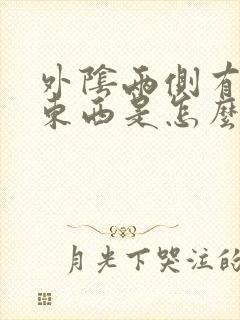 外陰兩側有
東西是怎麼
月光下哭泣的